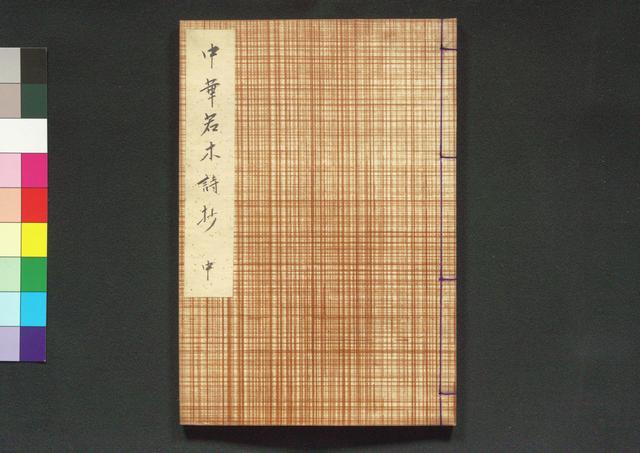 中華若木詩抄 中